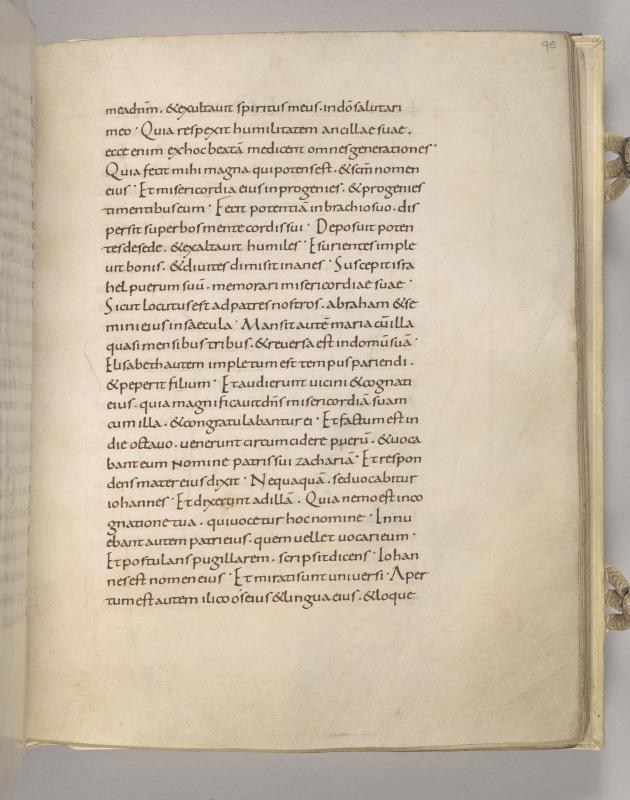 95
mea dnm̄. & exultauit spiritus meus. in dō salutari
meo. Quia respexit humilitatem ancillae suae.
ecce enim ex hoc beatā medicent omnes generationes.
Quia fecit mihi magna qui potens est. & scm̄ nomen
eius. Et misericordia eius in progenies. & progenies
timentibus eum. Fecit potentiā in brachio suo. dis
persit superbos mente cordis sui. Deposuit poten
tes de sede. & exaltauit humiles. Esurientes imple
uit bonis. & diuites dimisit inanes. Suscepit isra
hel puerum suū. memorari misericordiae suae.
Sicut locutus est ad patres nostros. abraham & se
mini eius in saecula. Mansit autē maria cū illa
quasi mensibus tribus. & reuersa est in domū suā.
Elisabeth autem impletum est tempus pariendi.
& peperit filium. Et audierunt uicini & cognati
eius. quia magnificauit dn̄s misericordiā suam
cum illa. & congratulabantur ei. Et factum est in
die octauo. uenerunt circumcidere puerū. & uoca
bant eum nomine patris sui zachariā. Et respon
dens mater eius dixit. Nequaquā. sed uocabitur
iohannes. Et dixerunt ad illā. Quia nemo est in co
gnatione tua. qui uocetur hoc nomine. Innu
ebant autem patri eius. quem uellet uocari eum.
Et postulans pugillarem. scripsit dicens. Iohan
nes est nomen eius. Et mirati sunt uniuersi. Aper
tum est autem ilico ós eius & lingua eius. & loque